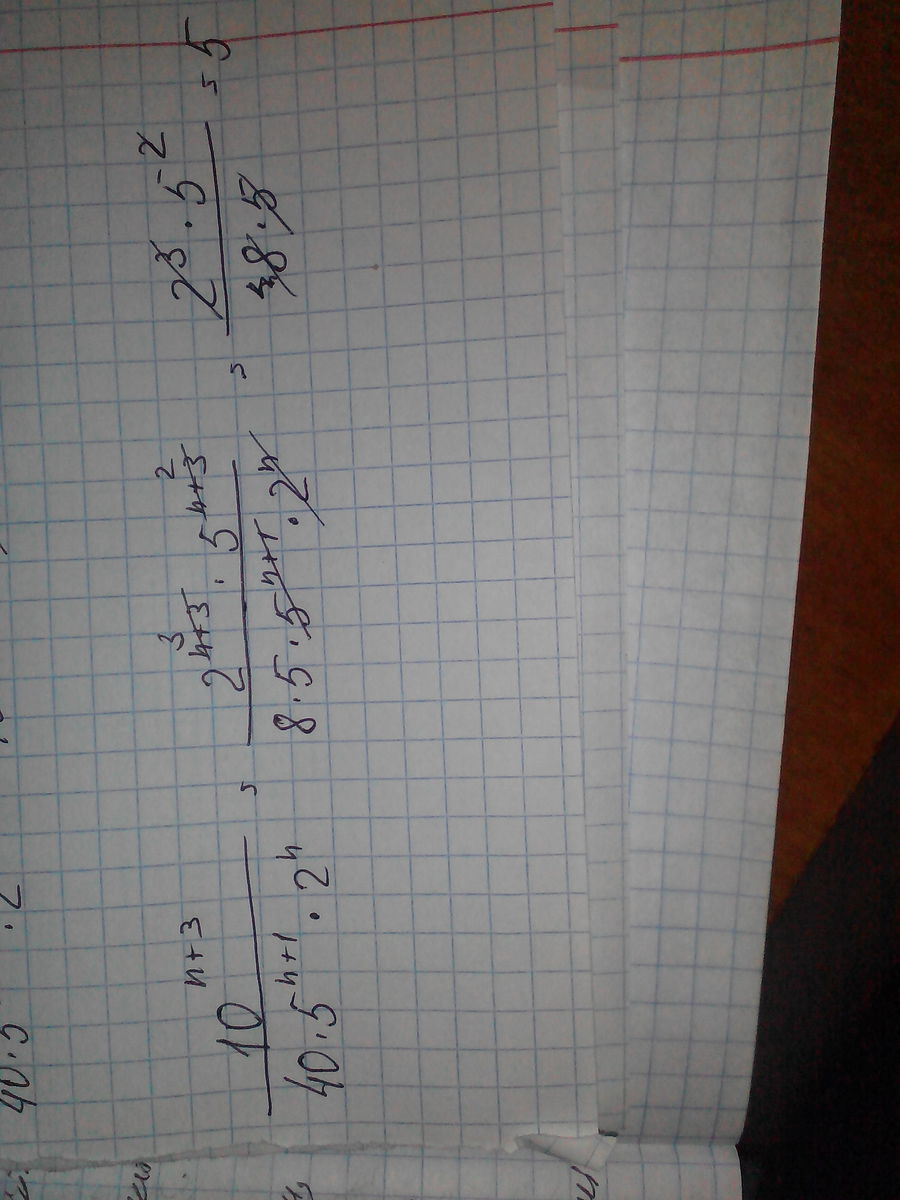 40·5 ·2
10^{n+3} / 40·5^{n+1}·2^n = 2^{n+3}·5^{n+3} / 8·5·5^{n+1}·2^n = 2^3·5^2 / 8·5 = 5